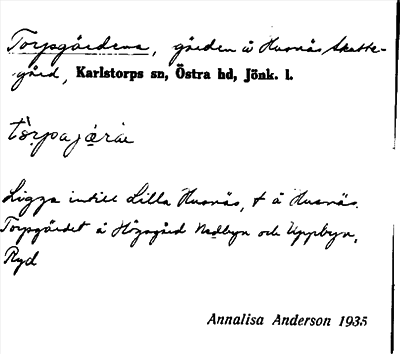 Torpgärdena, gärden å Husnäs skatte-
gård, Karlstorps sn, Östra hd, Jönk. l.
Ligga intill Lilla Husnäs, t å Husnäs.
Torpgärdet å Högagård Nedbyn och Uppbyn,
Ryd
Annalisa Anderson 1935